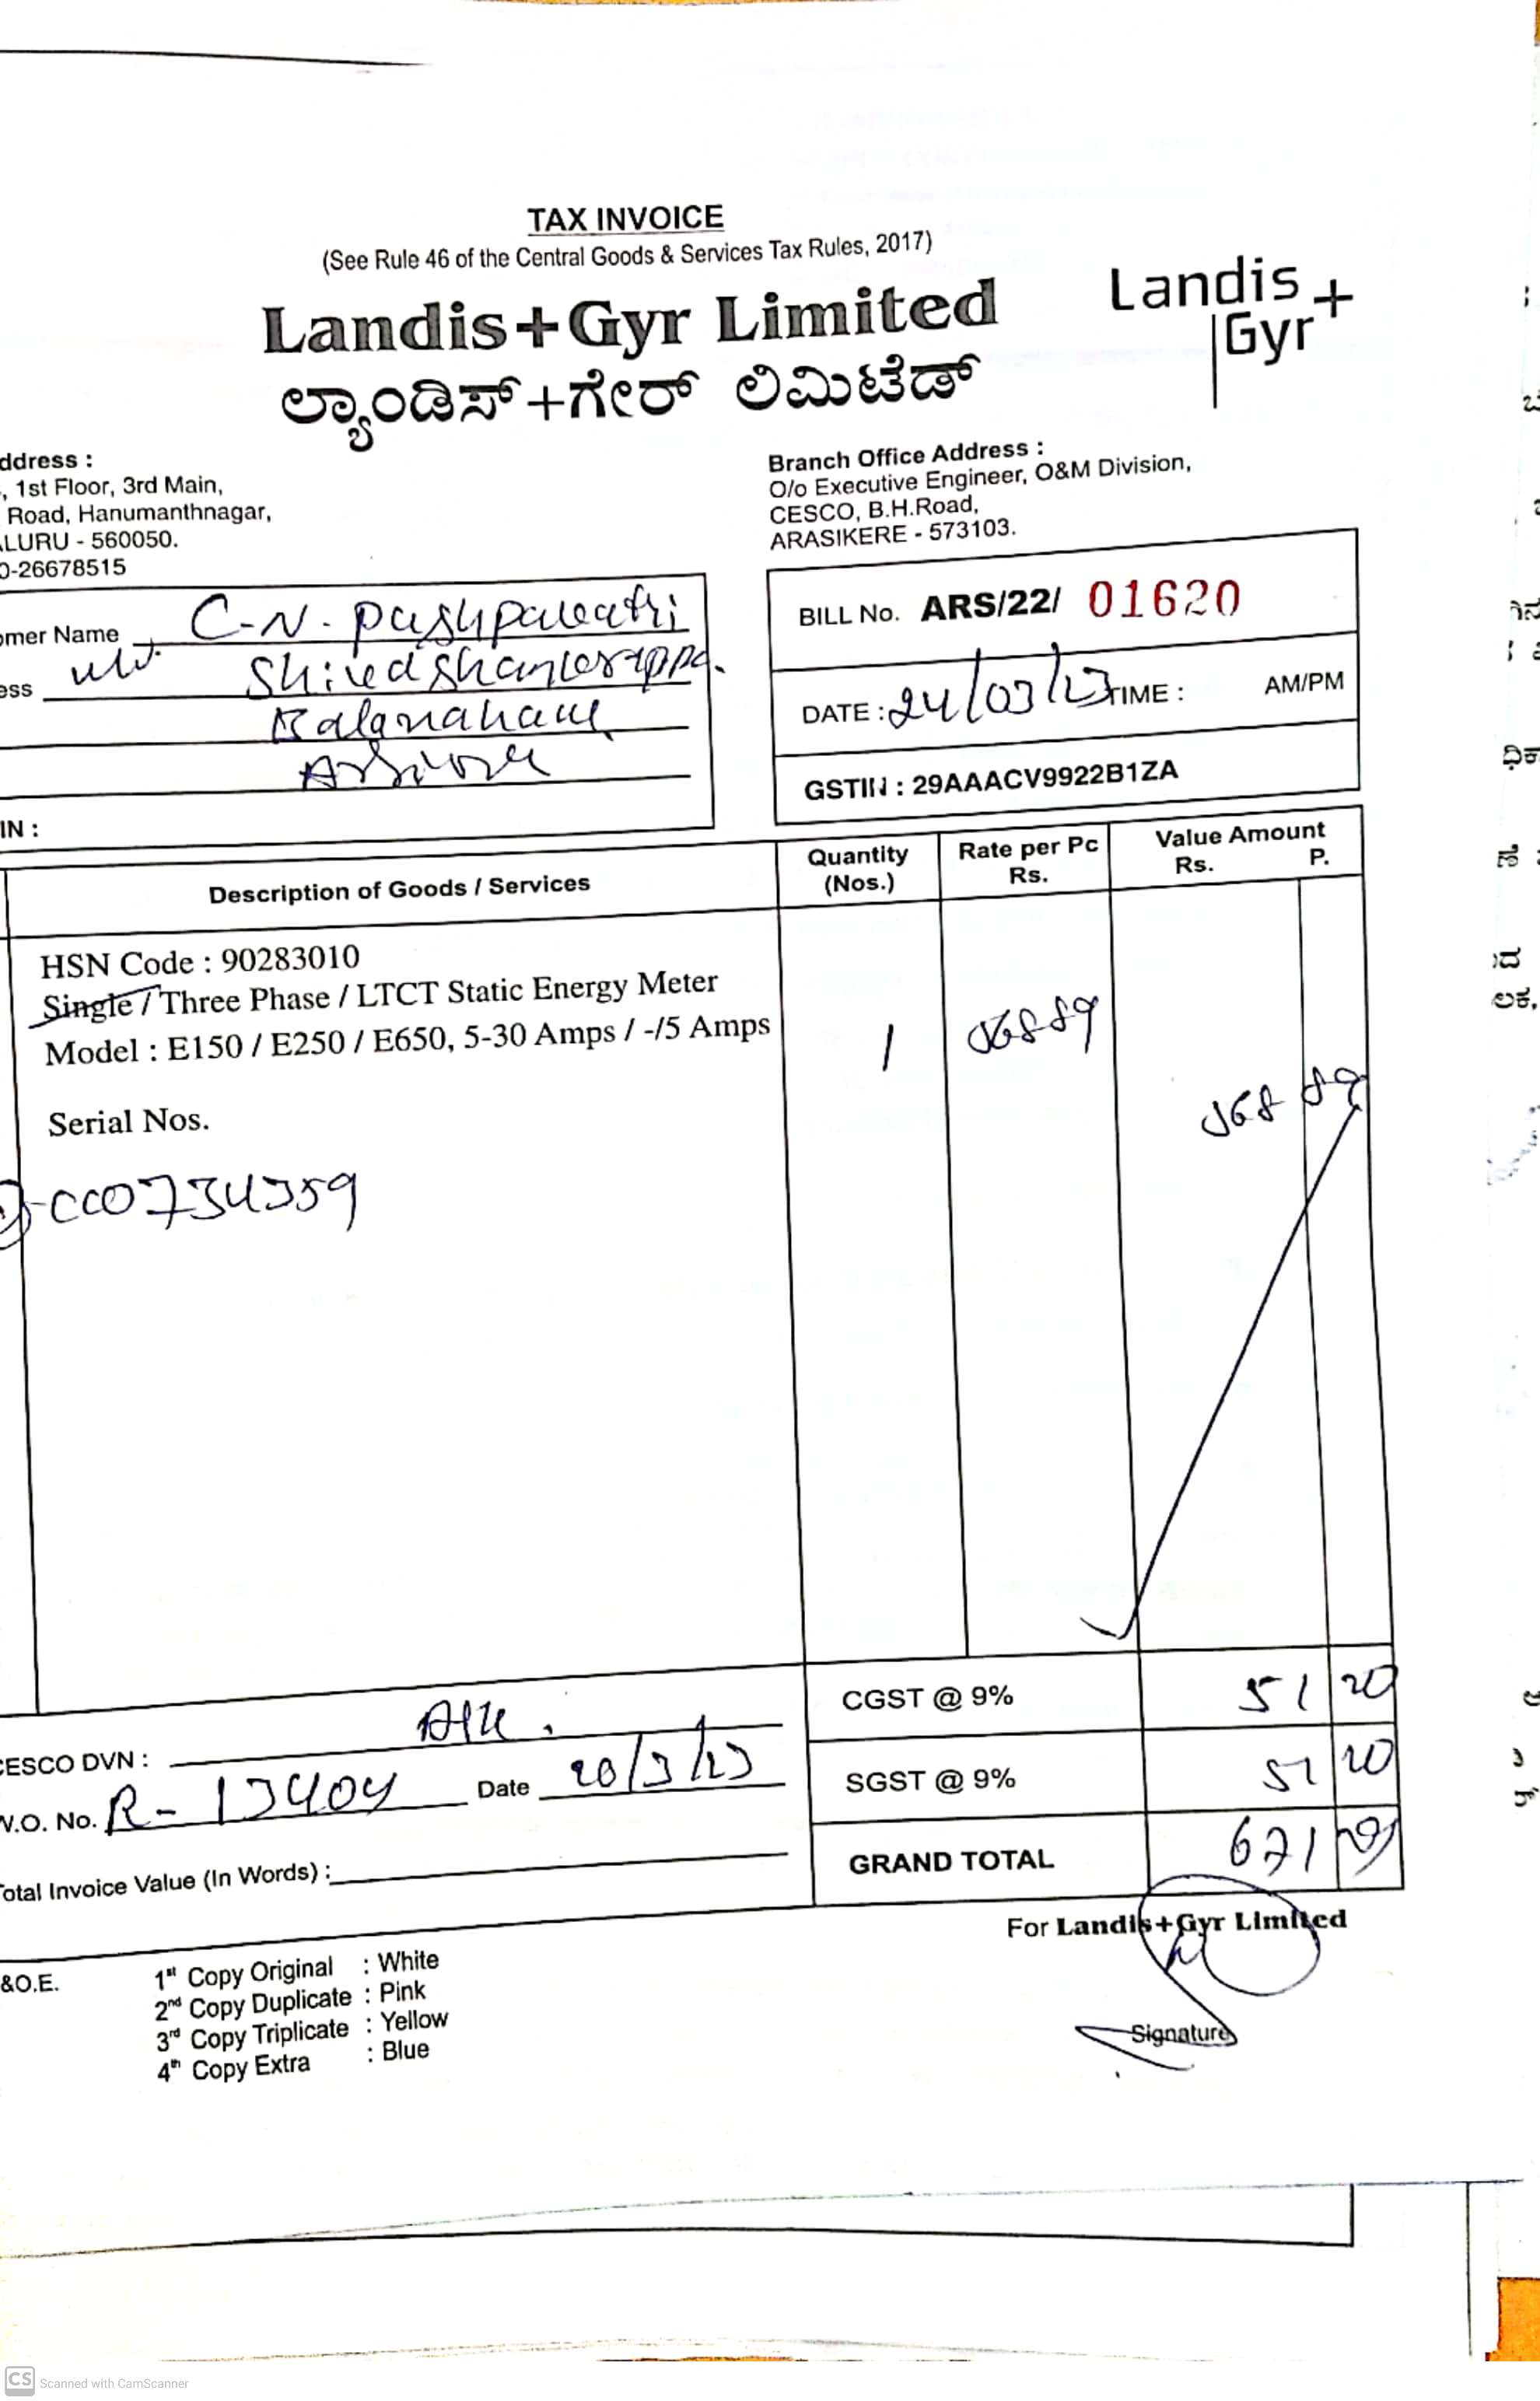 TAX INVOICE
(See Rule 46 of the Central Goods & Services Tax Rules, 2017)
Landis+Gyr Limited
Landis
Gyr+
ಲ್ಯಾಂಡಿಸ್+ಗೇರ್ ಲಿಮಿಟೆಡ್
ddress :
, 1st Floor, 3rd Main,
Road, Hanumanthnagar,
LURU - 560050.
0-26678515
Branch Office Address :
O/o Executive Engineer, O&M Division,
CESCO, B.H.Road,
ARASIKERE - 573103.
omer Name C-N.
ess
IN :
BILL No. ARS/22/ 01620
DATE : 24/03/23 TIME : AM/PM
GSTIN : 29AAACV9922B1ZA
Description of Goods / Services
Quantity
(Nos.)
Rate per Pc
Rs.
Value Amount
Rs. P.
HSN Code : 90283010
Single / Three Phase / LTCT Static Energy Meter
Model : E150 / E250 / E650, 5-30 Amps / -/5 Amps
1 568 89
568 89
Serial Nos.
CGST @ 9% 51 20
SGST @ 9% 51 20
GRAND TOTAL 671 29
CESCO DVN :
W.O. No. R- 13404 Date 20/3/23
Total Invoice Value (In Words) :
For Landis+Gyr Limited
Signature
&O.E.
1st Copy Original : White
2nd Copy Duplicate : Pink
3rd Copy Triplicate : Yellow
4th Copy Extra : Blue
CS Scanned with CamScanner